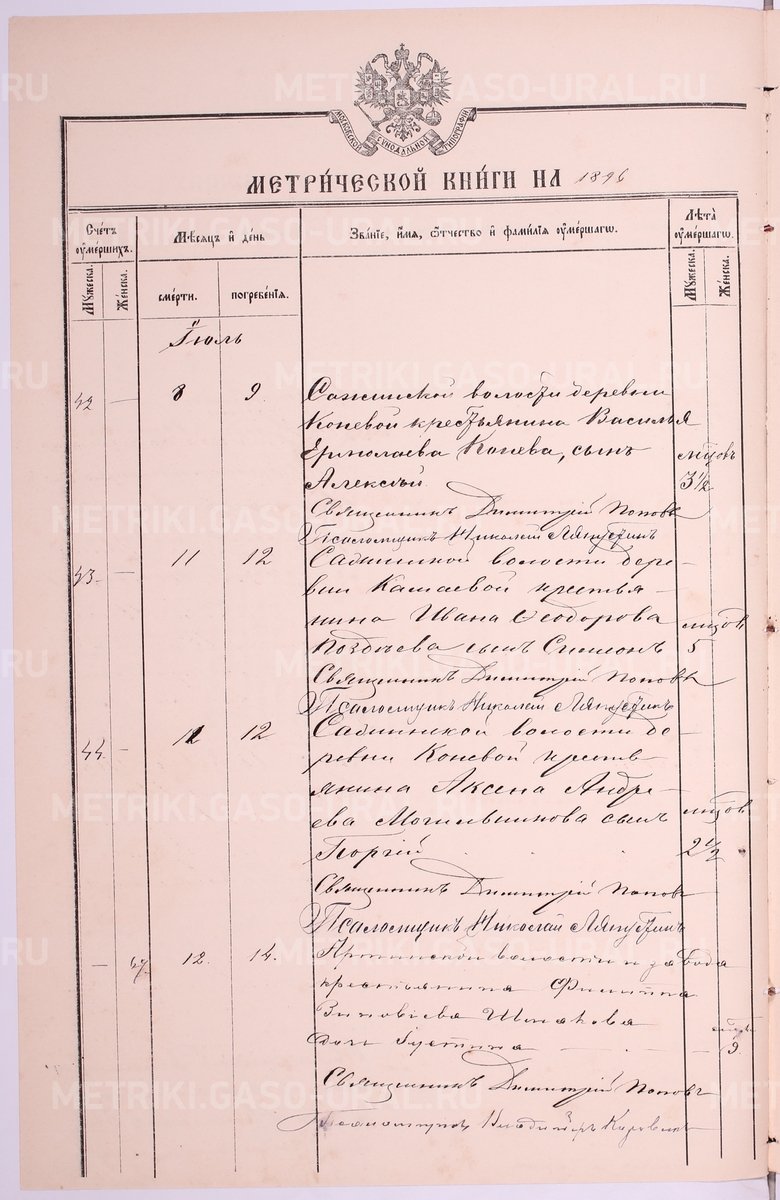 МОСКОВСКОЙ СѴНОДАЛЬНОЙ ТИПОГРАФІИ
МЕТРИ́ЧЕСКОЙ КНИ́ГИ НА 1896
Сче́тъ ᲂу҆ме́ршихъ. Мѣ́сяцъ и҆ де́нь Зва́нїе, и҆́мя, ѻ҆́тчество и҆ фами́лїя ᲂу҆ме́ршагѡ. Лѣ́та ᲂу҆ме́ршагѡ.
Мꙋ́жеска. Же́нска. сме́рти. погребе́нїя. Мꙋ́жеска. Же́нска.
Іюль
42 — 8 9 Сажинской волости деревни
Коневой крестьянина Василья
Ермолаева Конева, сынъ мѣцовъ
Алексѣй. 3½
Священникъ Димитрій Поповъ
Псаломщикъ Николай Ляпустинъ
43 — 11 12 Сажинской волости дере-
вни Кашаевой крестья-
нина Ивана Ѳеодорова мѣцов.
Поздѣева сынъ Симеонъ 5
Священникъ Димитрій Поповъ
Псаломщикъ Николай Ляпустинъ
44 — 12 12 Сажинской волости де-
ревни Коневой кресть-
янина Аксена Андре-
ева Могильникова сынъ мѣцов
Георгій 2½
Священникъ Димитрій Поповъ
Псаломщикъ Николай Ляпустинъ
— 47 12. 14. Артинской волости и завода
крестьянина Филиппа
Зиновьева Шпакова
дочь Іустина 9
Священникъ Димитрій Поповъ
Псаломщикъ